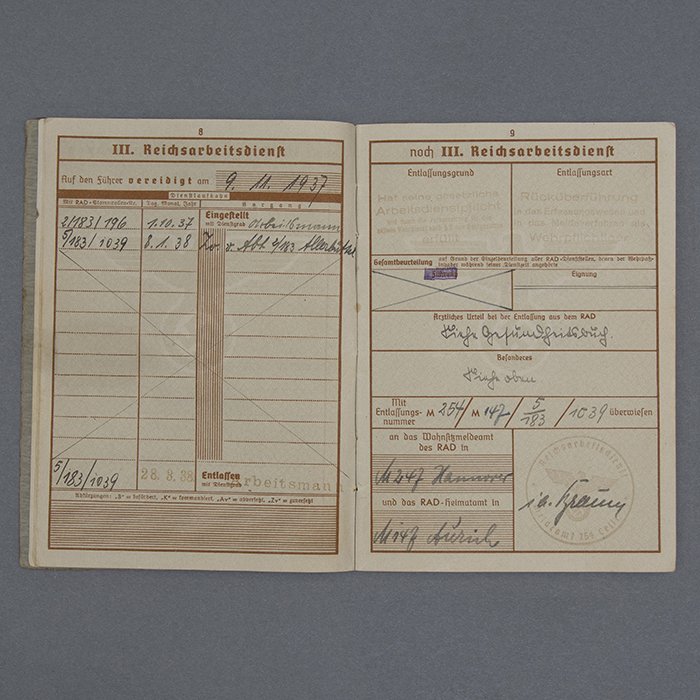 8
III. Reichsarbeitsdienst
Auf den Führer vereidigt am 9. 11. 1937
Dienstlaufbahn
Mit RAD-Stammrollennr. Tag, Monat, Jahr Vorgang
2/183/196 1.10.37 Eingestellt
mit Dienstgrad Arbeitsmann
5/183/1039 8.1.38 Zv. v. Abt.
5/183/1039 28. 3. 38 Entlassen
mit Dienstgrad Arbeitsmann
Abkürzungen: „B" = befördert, „K" = kommandiert, „Av" = abversetzt, „Zv" = zuversetzt
9
noch III. Reichsarbeitsdienst
Entlassungsgrund Entlassungsart
Hat seine gesetzliche
Arbeitsdienstpflicht
Rücküberführung
in das Erfassungswesen und
Gesamtbeurteilung auf Grund der Einzelbeurteilung aller RAD-Dienststellen, denen der Wehrpaß-
inhaber während seiner Dienstzeit angehörte
Eignung
Ärztliches Urteil bei der Entlassung aus dem RAD
Siehe Gesundheitsbuch.
Besonderes
Siehe oben
Mit
Entlassungs-
nummer M 254 / M 147 / 5/183 / 1039 überwiesen
an das Wohnsitzmeldeamt
des RAD in
M 247 Hannover
und das RAD-Heimatamt in
M 147 Aurich
Reichsarbeitsdienst